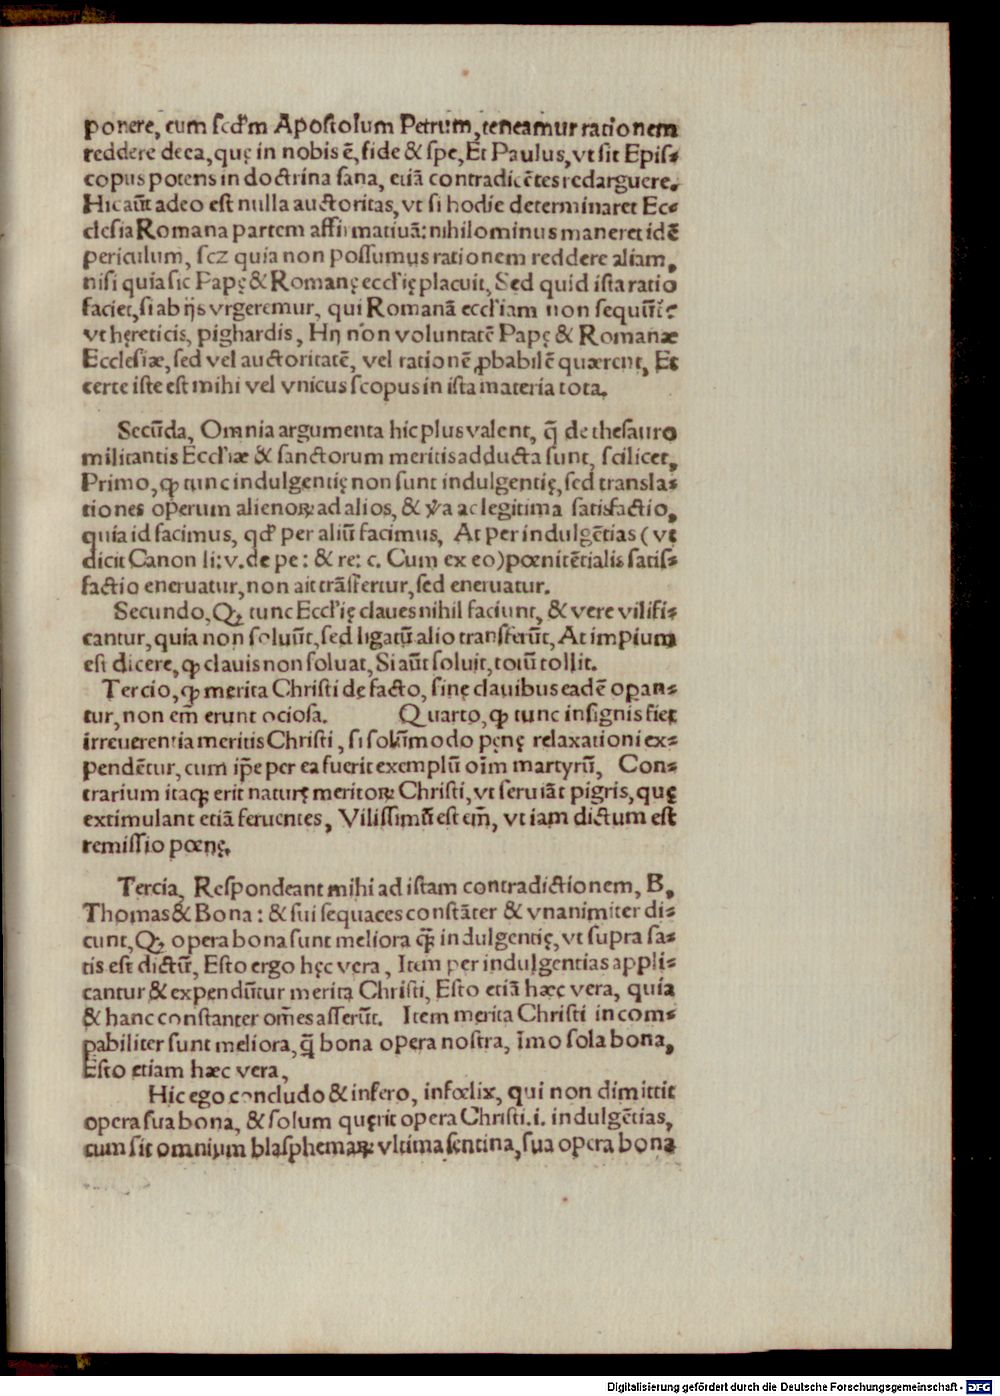 ponere, cum scd'm Apostolum Petrum, teneamur rationem
reddere de ea, quę in nobis ē, fide & spe, Et Paulus, vt sit Epis-
copus potens in doctrina sana, etiā contradicētes redarguere.
Hic aūt adeo est nulla auctoritas, vt si hodie determinaret Ec-
clesia Romana partem affirmatiuā: nihilominus maneret idē
periculum, scz quia non possumus rationem reddere aliam,
nisi quia sic Papę & Romanę eccl'ię placuit, Sed quid ista ratio
faciet, si ab ijs vrgeremur, qui Romanā eccl'iam non sequūtᷣ
vt hęreticis, pighardis, Hij non voluntatē Papę & Romanæ
Ecclesiæ, sed vel auctoritatē, vel rationē ꝓbabilē quærent, Et
certe iste est mihi vel vnicus scopus in ista materia tota.
Secūda, Omnia argumenta hic plus valent, q̄ de thesauro
militantis Eccl'iæ & sanctorum meritis adducta sunt, scilicet,
Primo, ꝙ tunc indulgentię non sunt indulgentię, sed transla-
tiones operum alienoꝝ ad alios, & v'a ac legitima satisfactio,
quia id facimus, qd' per aliū facimus, At per indulgētias (vt
dicit Canon li: v. de pe: & re: c. Cum ex eo) pœnitētialis satis-
factio eneruatur, non ait trāsfertur, sed eneruatur.
Secundo, Qꝫ tunc Eccl'ię claues nihil faciunt, & vere vilifi-
cantur, quia non soluūt, sed ligatū alio transferūt, At impium
est dicere, ꝙ clauis non soluat, Si aūt soluit, totū tollit.
Tercio, ꝙ merita Christi de facto, sine clauibus eadē opan-
tur, non em̄ erunt ociosa. Quarto, ꝙ tunc insignis fiet
irreuerentia meritis Christi, si solūmodo pęnę relaxationi ex-
pendētur, cum ip̄e per ea fuerit exemplū oīm martyrū, Con-
trarium itaqꝫ erit naturę meritoꝝ Christi, vt seruiāt pigris, quę
extimulant etiā feruentes, Vilissimū est em̄, vt iam dictum est
remissio pœnę.
Tercia, Respondeant mihi ad istam contradictionem, B.
Thomas & Bona: & sui sequaces constāter & vnanimiter di-
cunt, Qꝫ opera bona sunt meliora q̄ꝫ indulgentię, vt supra sa-
tis est dictū, Esto ergo hęc vera, Item per indulgentias appli-
cantur & expendūtur merita Christi, Esto etiā hæc vera, quia
& hanc constanter om̄es asserūt. Item merita Christi incom-
pabiliter sunt meliora, q̄ bona opera nostra, Imo sola bona,
Esto etiam hæc vera,
Hic ego concludo & infero, infœlix, qui non dimittit
opera sua bona, & solum quęrit opera Christi .i. indulgētias,
cum sit omnium blasphemaꝝ vltima sentina, sua opera bona
Digitalisierung gefördert durch die Deutsche Forschungsgemeinschaft - DFG